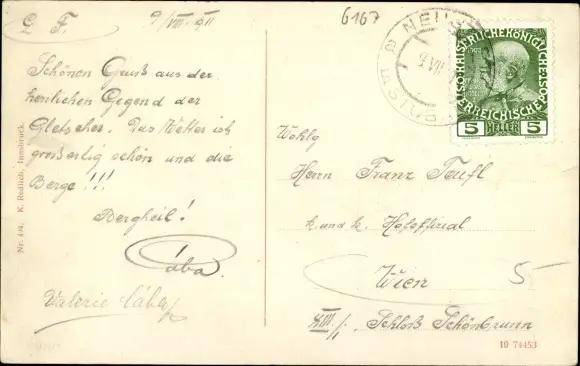 L. F. 9/VIII. 911
Schönen Gruß aus der
herrlichen Gegend der
Gletscher. Das Wetter ist
großartig schön und die
Berge !!!
Bergheil!
Cába.
Valerie Cába
Nr. 4/4. K. Redlich, Innsbruck.
6167
NEU
STUB
KAISERLICHE KÖNIGLICHE
ÖSTERREICHISCHE
5 HELLER 5
Wohlg
Herrn Franz Teufl
k. und k. Hofoffizial
Wien 5
XIII/1, Schloß Schönbrunn
10 74453